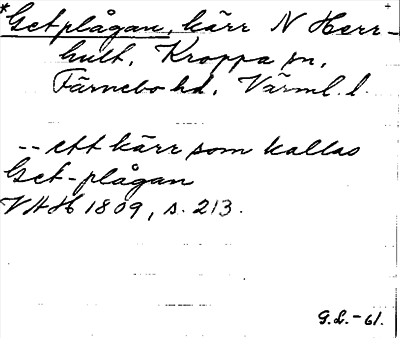 *Getplågan, kärr N Herr-
hult, Kroppa sn,
Färnebo hd, Värml. l.
-- ett kärr som kallas
Get-plågan
VAH 1809, s. 213.
G.L. -61.